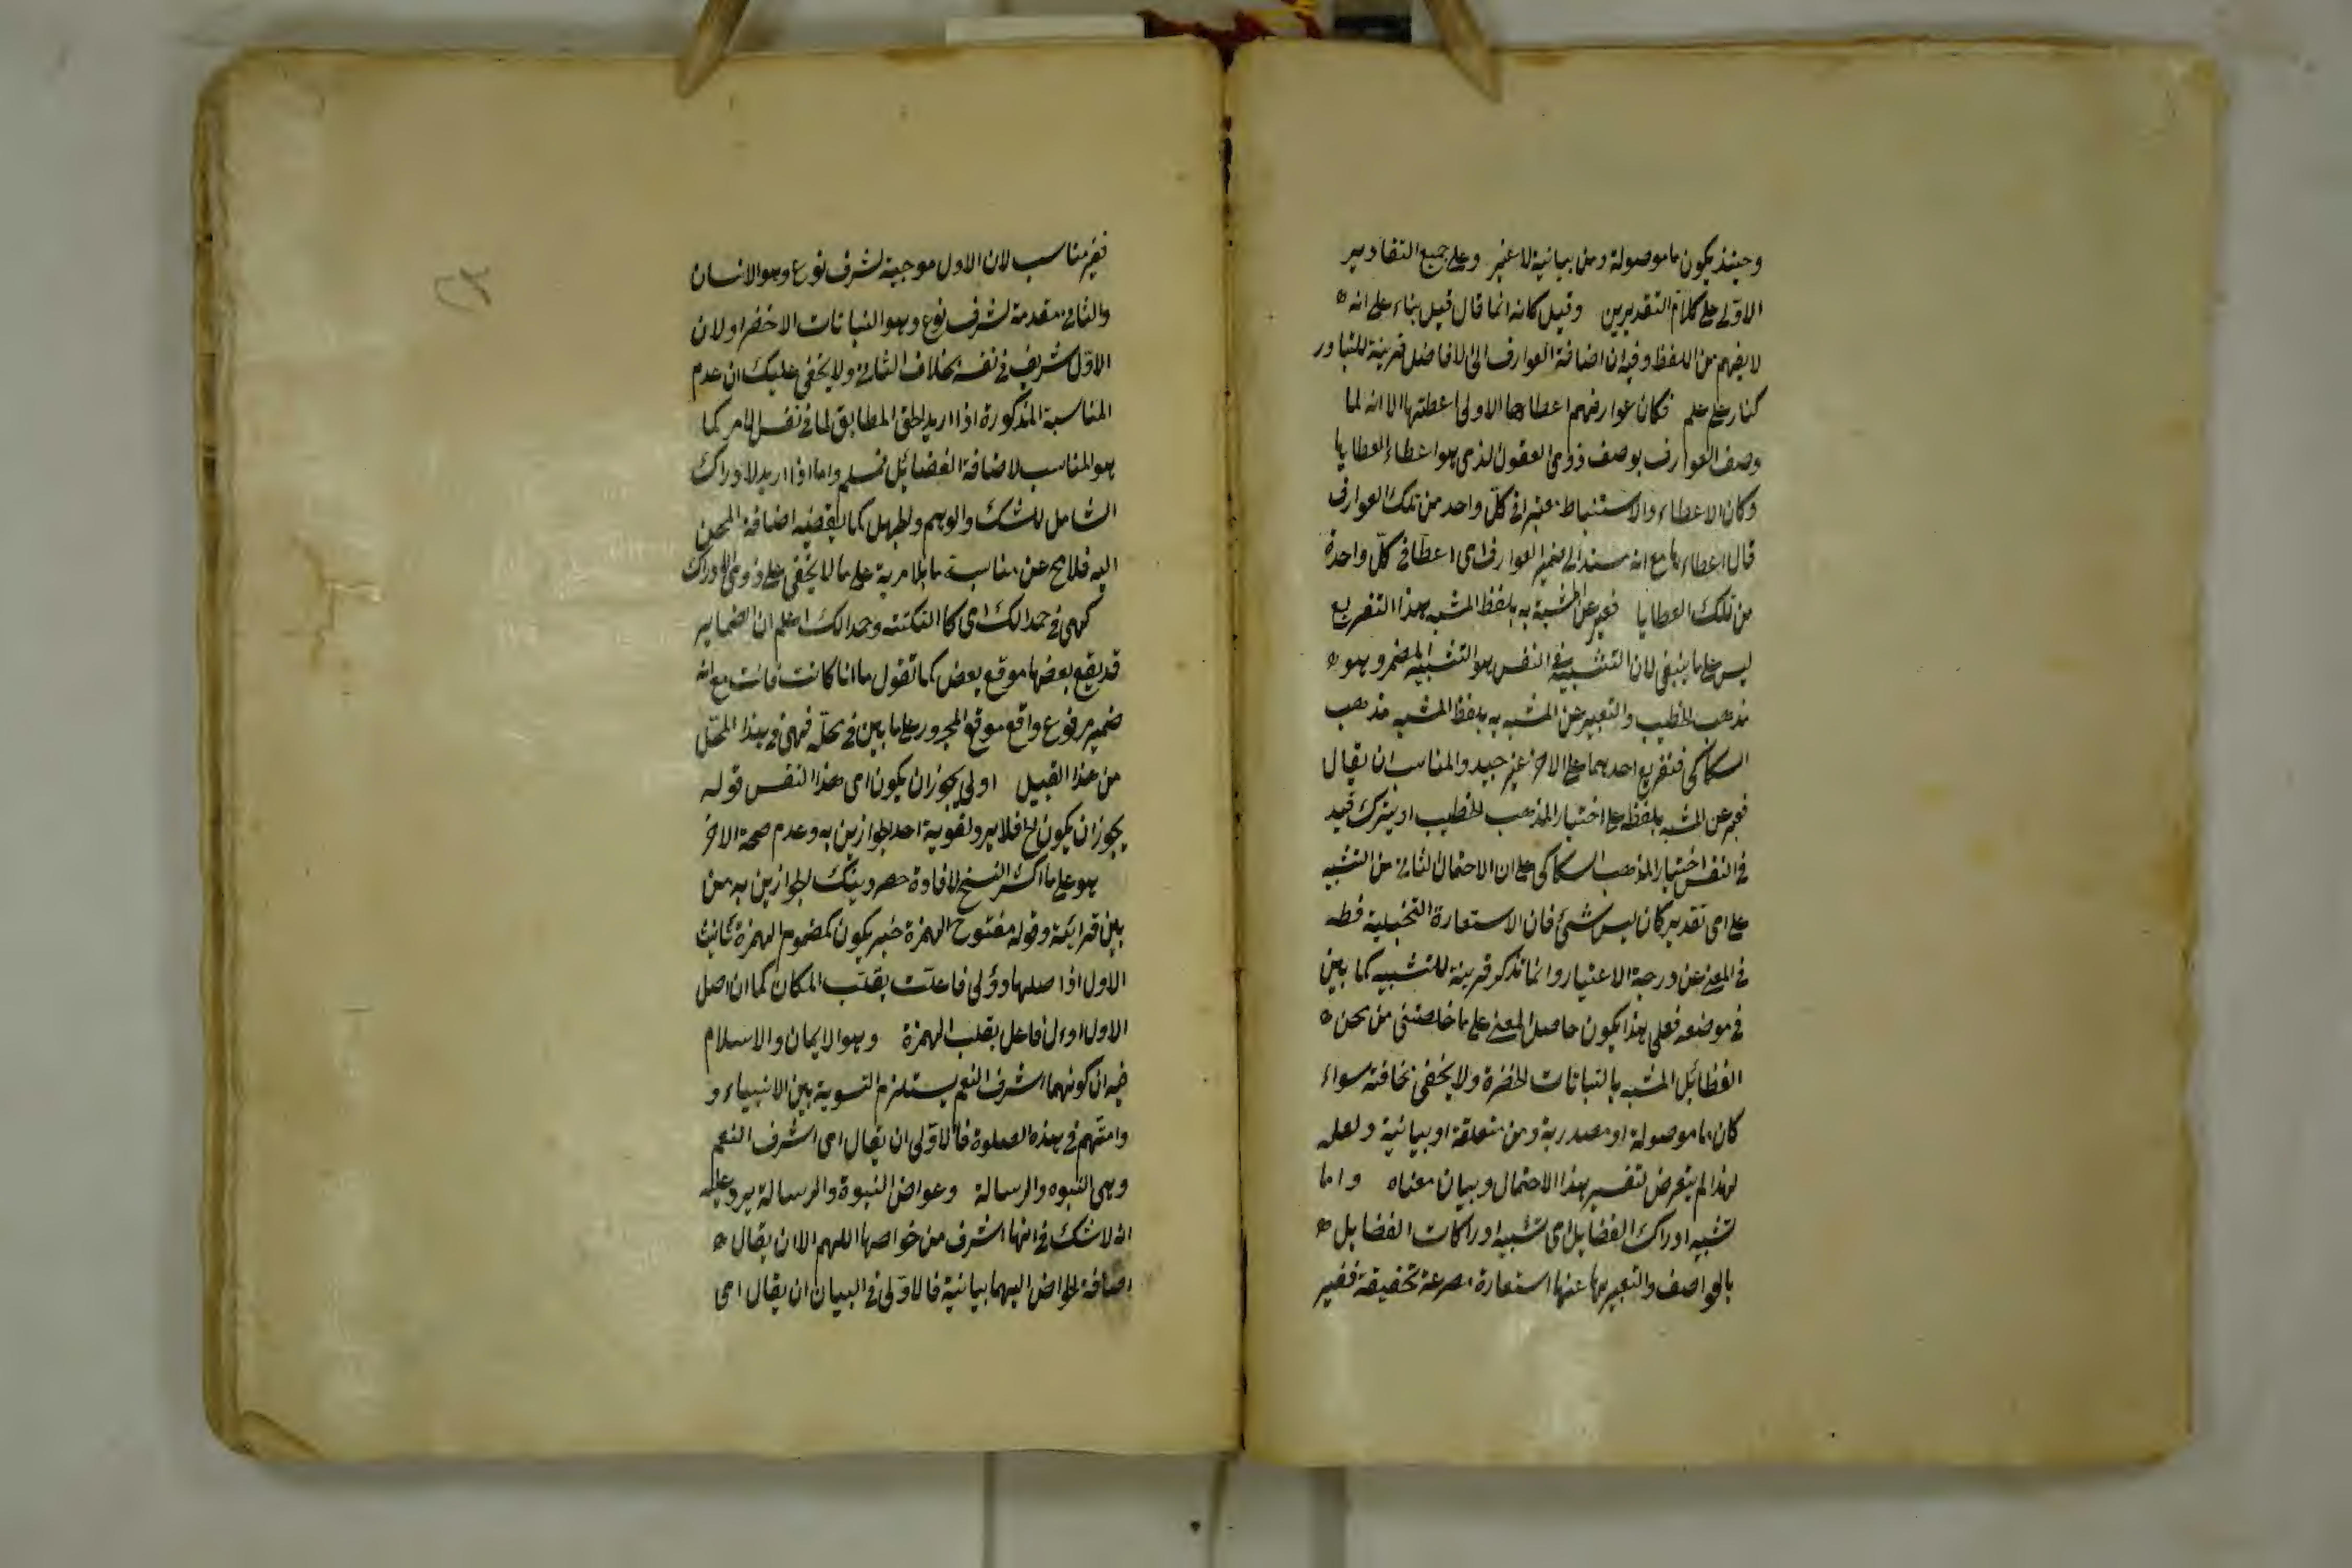 وحينئذ يكون ما موصولة ومن بيانية لا غير وعلى جميع التقادير
الاولى على كلام التقديرين وقيل كانه انما قال قيل بناء على انه
لا يفهم من اللفظ وفيه ان اضافة العوارف الى الافاضل قرينة للتبادر
كنار على علم فكان عوارفهم اعطاءها الاولى اعطتها الا انه لما
وصف العوارف بوصف ذوى العقول الذى هو اعطاء العطايا
وكان الاعطاء والاستنباط معتبرا فى كل واحد من تلك العوارف
قال اعطاء ها مع انه مسند الى ضمير العوارف اى اعطا فى كل واحدة
من تلك العطايا فعبر عن المشبة به بلفظ المشبه هذا التفريع
ليس على ما ينبغى لان التشبية فى النفس هو التشبيه المضمر وهو
مذهب الخطيب والتعبير عن المشبه به بلفظ المشبه مذهب
السكاكى فتفريع احدهما على الاخر غير جيد والمناسب ان يقال
فعبر عن المشبه بلفظه على اختيار المذهب الخطيب او يترك قيد
فى النفس اختيار المذهب السكاكى على ان الاحتمال الثانى من التشبيه
على اى تقدير كان ليس شئ فان الاستعارة التخييلية
فى المعنى عن درجة الاعتبار وانما تذكر قرينة للتشبيه كما بين
فى موضعه فعلى هذا يكون حاصل المعنى على ما خلصتنى من محن
الفظائل المشبه بالنباتات الخضرة ولا يخفى سخافته سواء
كان ما موصولة او مصدرية ومن متعلقة او بيانية ولعله
لهذا لم يتعرض لتفسير هذا الاحتمال وبيان معناه واما
تشبيه ادراك الفضايل اى تشبيه ادراكات الفضايل
بالعواصف والتعبير بها عنها استعارة مصرحة تحقيقة فغير
فغير مناسب لان الاول موجبة لشرف نوع وهو الانسان
والثانى مقدمة لشرف نوع وهو النباتات الاخضر او لان
الاول شريف فى نفسه بخلاف الثانى ولا يخفى عليك ان عدم
المناسبة المذكورة اذا اريد الحق المطابق لما فى نفس الامر كما
هو المناسب لاضافة الفضائل فمسلم واما اذا اريد الادراك
الشامل للشك والوهم والجهل كما يقتضيه اضافة المحن
اليه فلا مح عن مناسبة ما بلا مرية على ما لا يخفى على ذوى الادراك
كهى فى حمدالك اى كا النكتة وحمدالك اعلم ان الضماير
قد يقع بعضها موقع بعض كما تقول ما انا كانت فانت مع انه
ضمير مرفوع واقع موقع المجرور على ما بين فى محله فهى فى هذا المحل
من هذا القبيل اولى يجوز ان يكون اى هذا النفس قوله
يجوز ان يكون الخ فلا يرد لقوية احد الجوازين به وعدم صحة الاخر
هو على ما اكثر النسخ لافادة حصر دينك الجوازين به من
بين قرايته وقوله مفتوح الهمزة خبر يكون كمضموم الهمزة ثانيث
الاول اذا صلها وؤلى فاعلت بقلب المكان كما ان اصل
الاول اوءل فاعل بقلب الهمزة وهو الايمان والاسلام
فيه ان كونهما اشرف النعم يستلزم التسوية بين الانبياء و
وامتهم فى هذه الصلوة فالاولى ان يقال اى اشرف النعم
وهى النبوه والرسالة وعواض النبوة والرسالة يرد عليه
انه لا شك فى انها اشرف من خواصها اللهم الا ان يقال
اضافة الخواض اليهما بيانية فالاولى فى البيان ان يقال اى